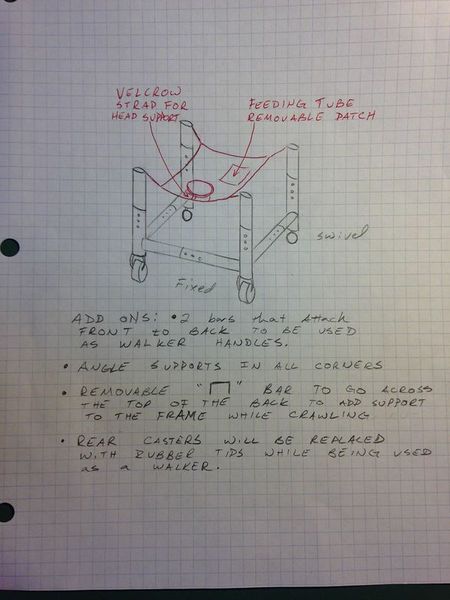 VELCROW
STRAD FOR
HEAD SUPPORT
FEEDING TUBE
REMOVABLE PATCH
swivel
Fixed
ADD ONS: • 2 bars that Attach
FRONT to BACK TO BE USED
AS WALKER HANDLES.
• ANGLE SUPPORTS IN ALL CORNERS
• REMOVABLE " " BAR TO GO ACROSS
THE TOP OF THE BACK TO ADD SUPPORT
TO THE FRAME WHILE CRAWLING
• REAR CASTERS WILL BE REPLACED
WITH RUBBER TIPS WHILE BEING USED
as a WALKER.